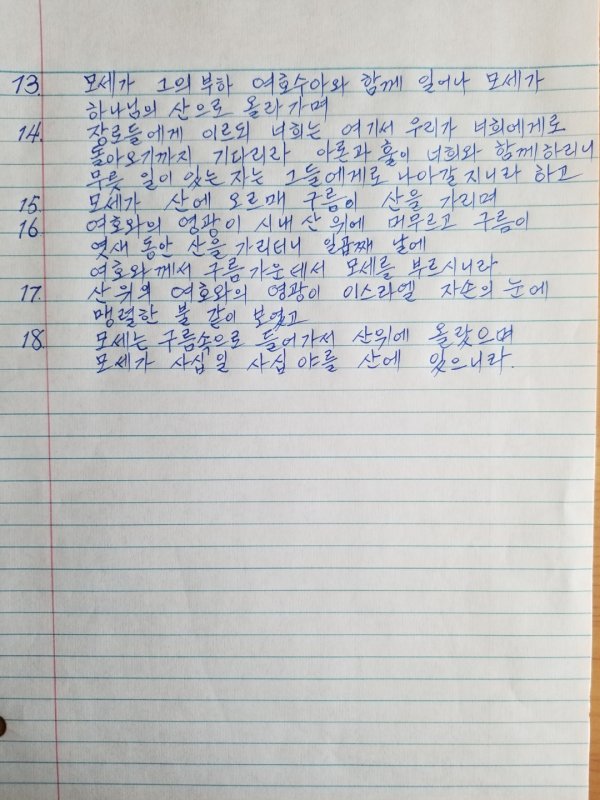 13. 모세가 그의 부하 여호수아와 함께 일어나 모세가
하나님의 산으로 올라가며
14. 장로들에게 이르되 너희는 여기서 우리가 너희에게로
돌아오기까지 기다리라 아론과 훌이 너희와 함께하리니
무릇 일이 있는 자는 그들에게로 나아갈지니라 하고
15. 모세가 산에 오르매 구름이 산을 가리며
16. 여호와의 영광이 시내 산 위에 머무르고 구름이
엿새 동안 산을 가리더니 일곱째 날에
여호와께서 구름 가운데서 모세를 부르시니라
17. 산 위의 여호와의 영광이 이스라엘 자손의 눈에
맹렬한 불 같이 보였고
18. 모세는 구름속으로 들어가서 산위에 올랐으며
모세가 사십 일 사십 야를 산에 있으니라.